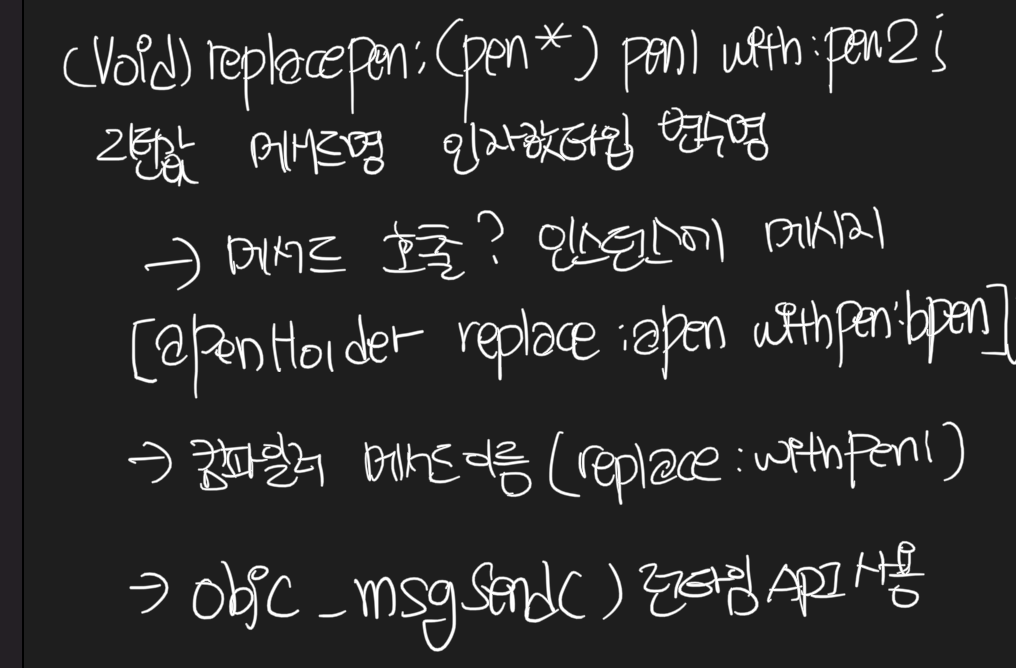 (void) replacepen:(pen*) pen1 with:pen2;
리턴값 메서드명 인자값타입 변수명
→ 메서드 호출? 인스턴스에 메시지
[apenHolder replace :apen withpen:bpen]
→ 컴파일러 메서드이름 (replace:withpen1)
→ objc_msgSend() 런타임 API 사용